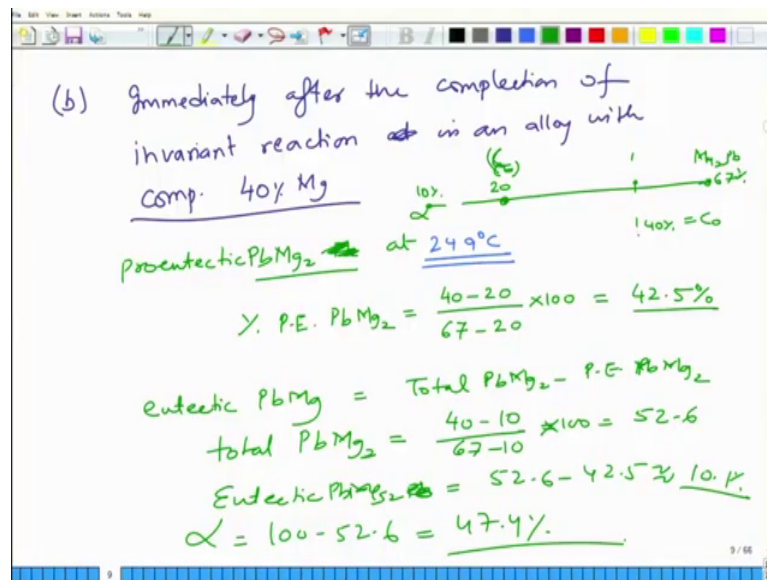 File Edit View Insert Actions Tools Help
(b) Immediately after the complection of
invariant reaction in an alloy with
comp. 40% Mg
10% 20 Mn2Pb
α 67%
40% = Co
proeutectic PbMg2 at 249°C
% P.E. PbMg2 = 40-20 / 67-20 ×100 = 42.5%
eutectic PbMg = Total PbMg2 - P.E PbMg2
total PbMg2 = 40-10 / 67-10 ×100 = 52.6
Eutectic PbMg2 = 52.6 - 42.5 ≈ 10.1%
α = 100 - 52.6 = 47.4%
9 / 66
9